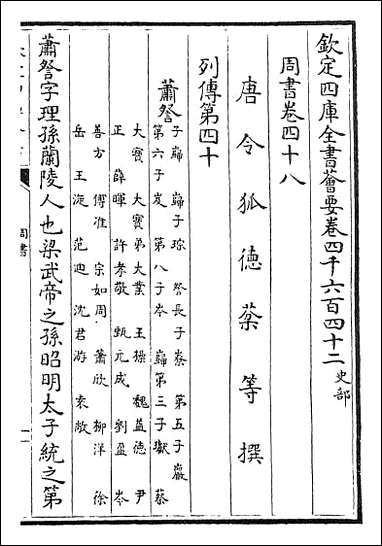 欽定四庫全書薈要卷四千六百四十二 史部
周書卷四十八
唐令狐德棻等撰
列傳第四十
蕭詧
子巋 巋子琮 詧長子嶚 第五子巖
第六子岌 第八子岑 巋第三子瓛 蔡
大寶 大寶弟大業 王操 魏益德 尹
正 薛暉 許孝敬 甄元成 劉盈 岑
善方 傅准 宗如周 蕭欣 柳洋 徐
岳 王淀 范迪 沈君游 袁敞
蕭詧字理孫蘭陵人也梁武帝之孫昭明太子統之第
周書
一